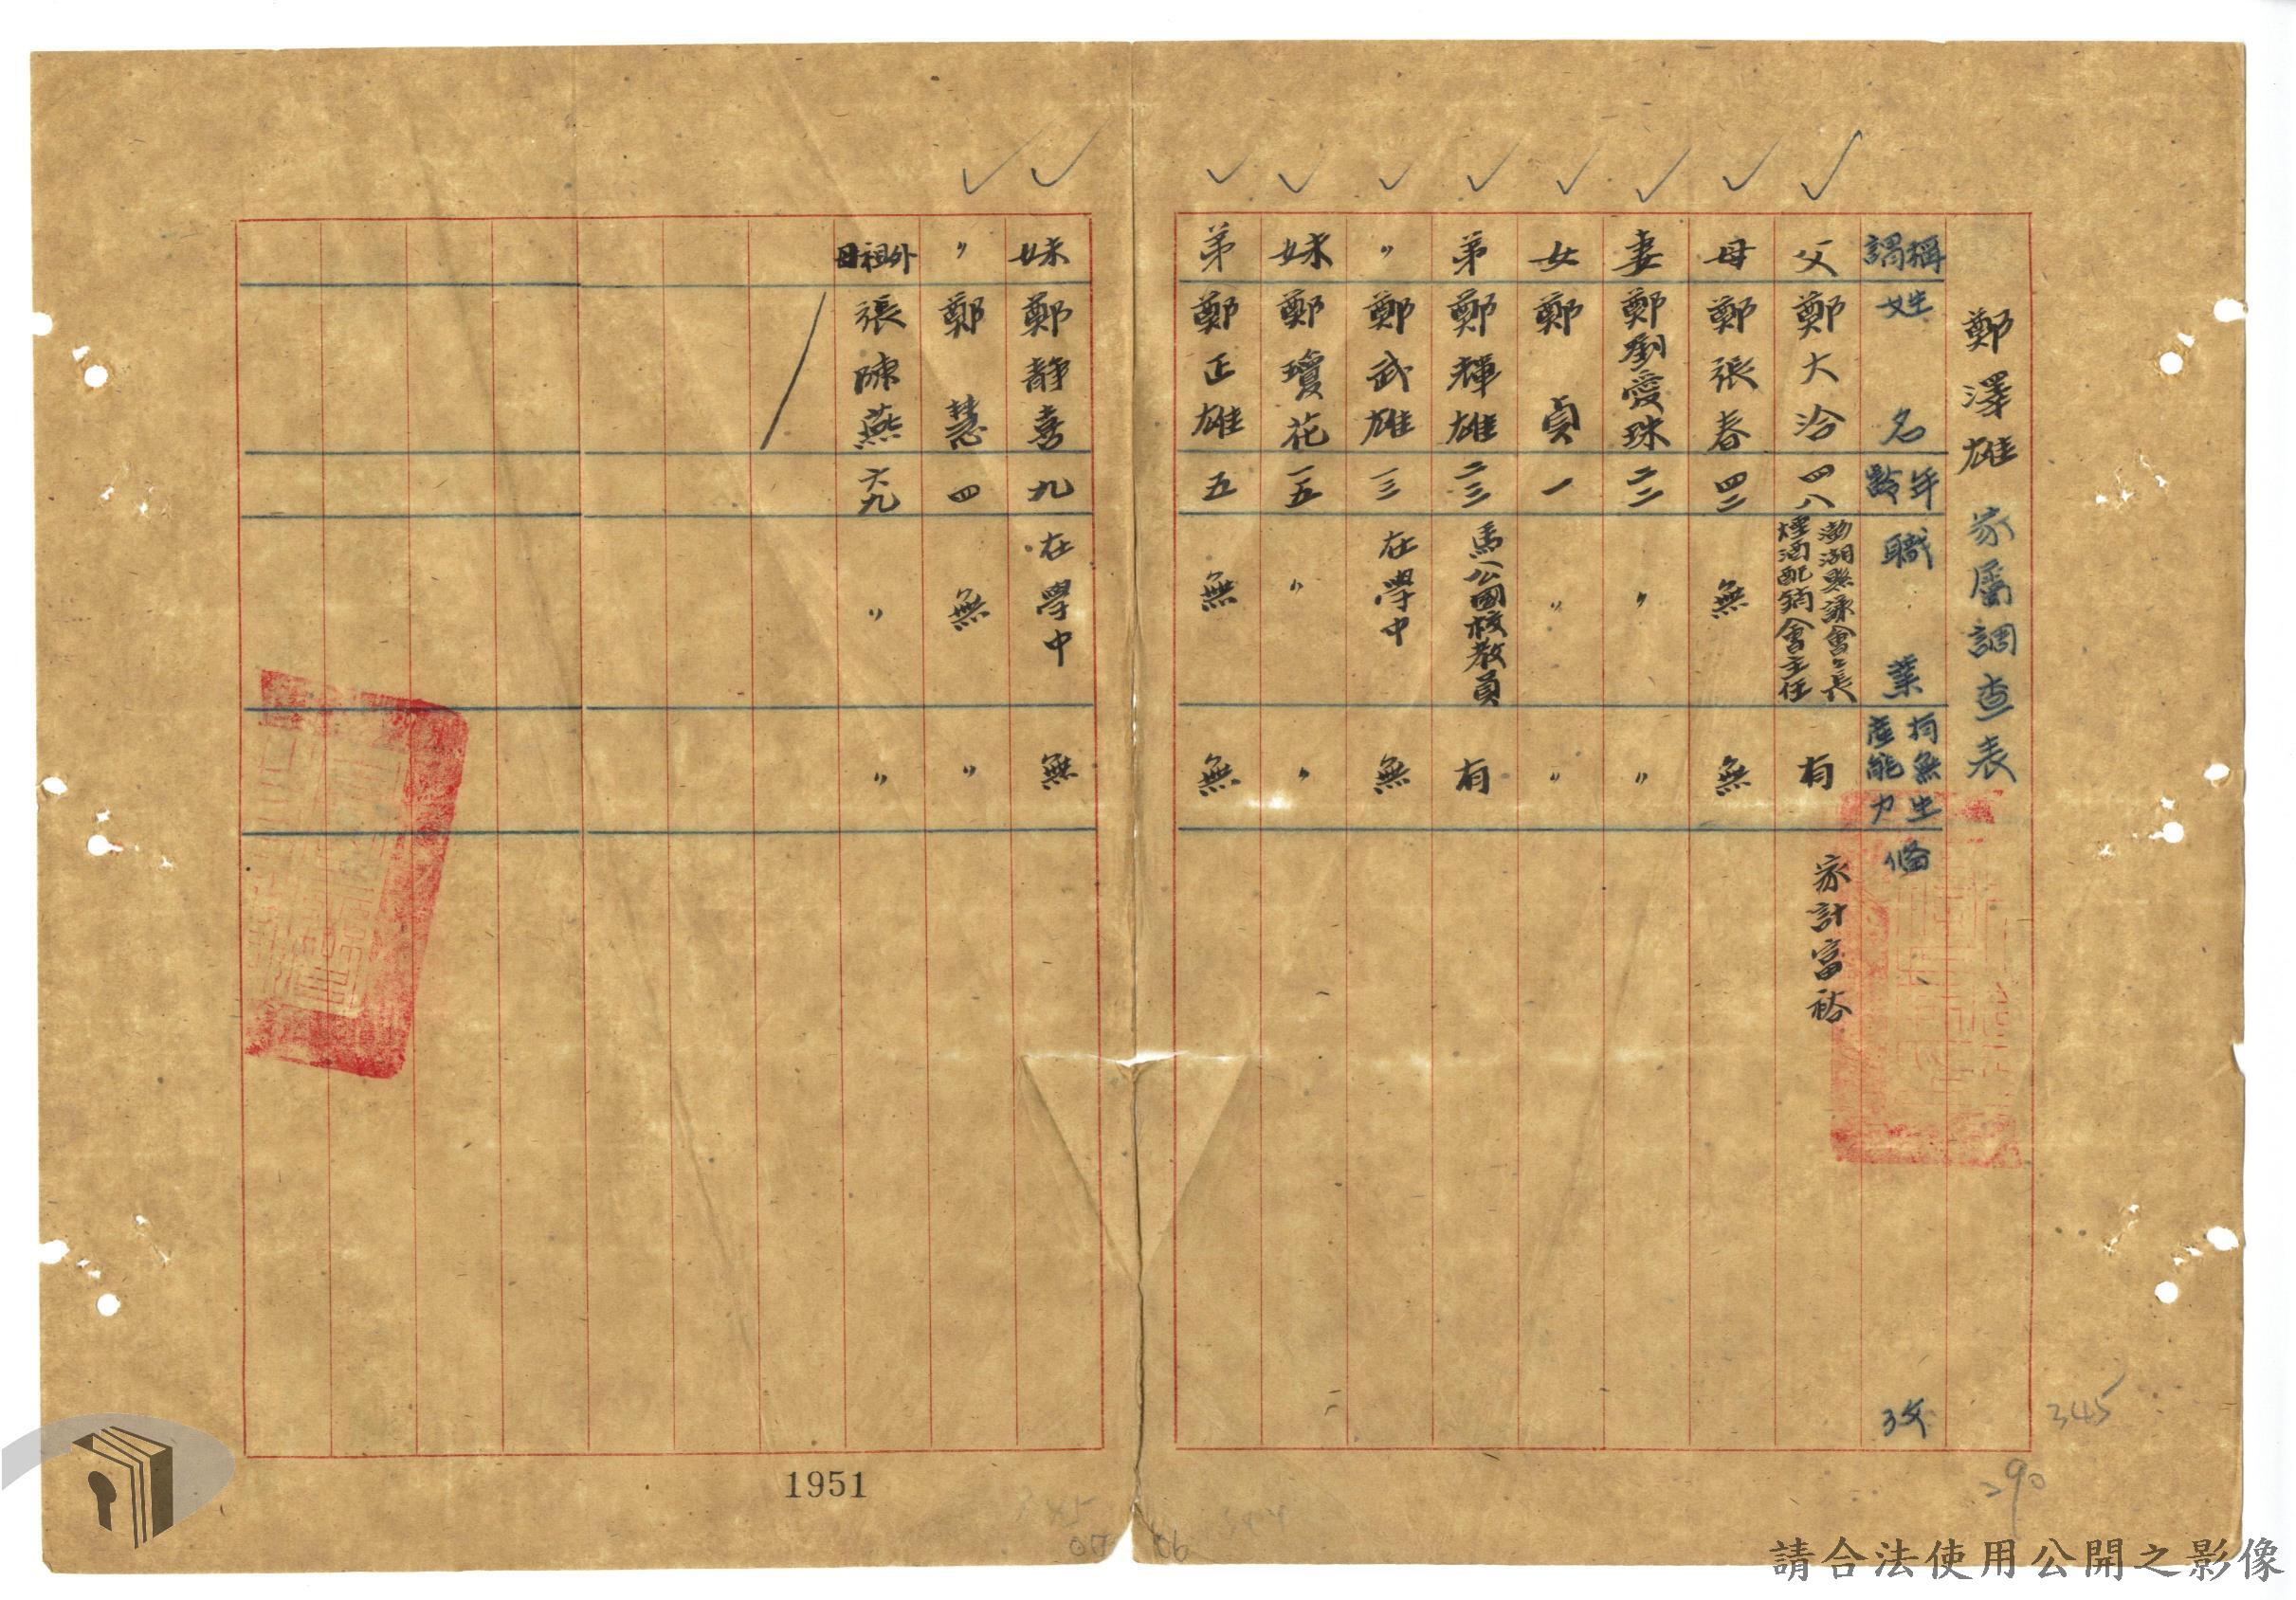 鄭澤雄 家屬調查表
稱謂 姓名 年齡 職業 有無生產能力 備攷
父 鄭大洽 四八 澎湖縣議會會長 煙酒配銷會主任 有 家計富裕
母 鄭張春 四二 無 無
妻 鄭劉愛珠 二二 〃 〃
女 鄭貞 一 〃 〃
弟 鄭輝雄 二三 馬公國校教員 有
〃 鄭武雄 一三 在學中 無
妹 鄭瓊花 一五 〃 〃
弟 鄭正雄 五 無 無
妹 鄭靜喜 九 在學中 無
〃 鄭慧 四 無 〃
外祖母 張陳燕 六九 〃 〃
345
290
1951
07
06
請合法使用公開之影像